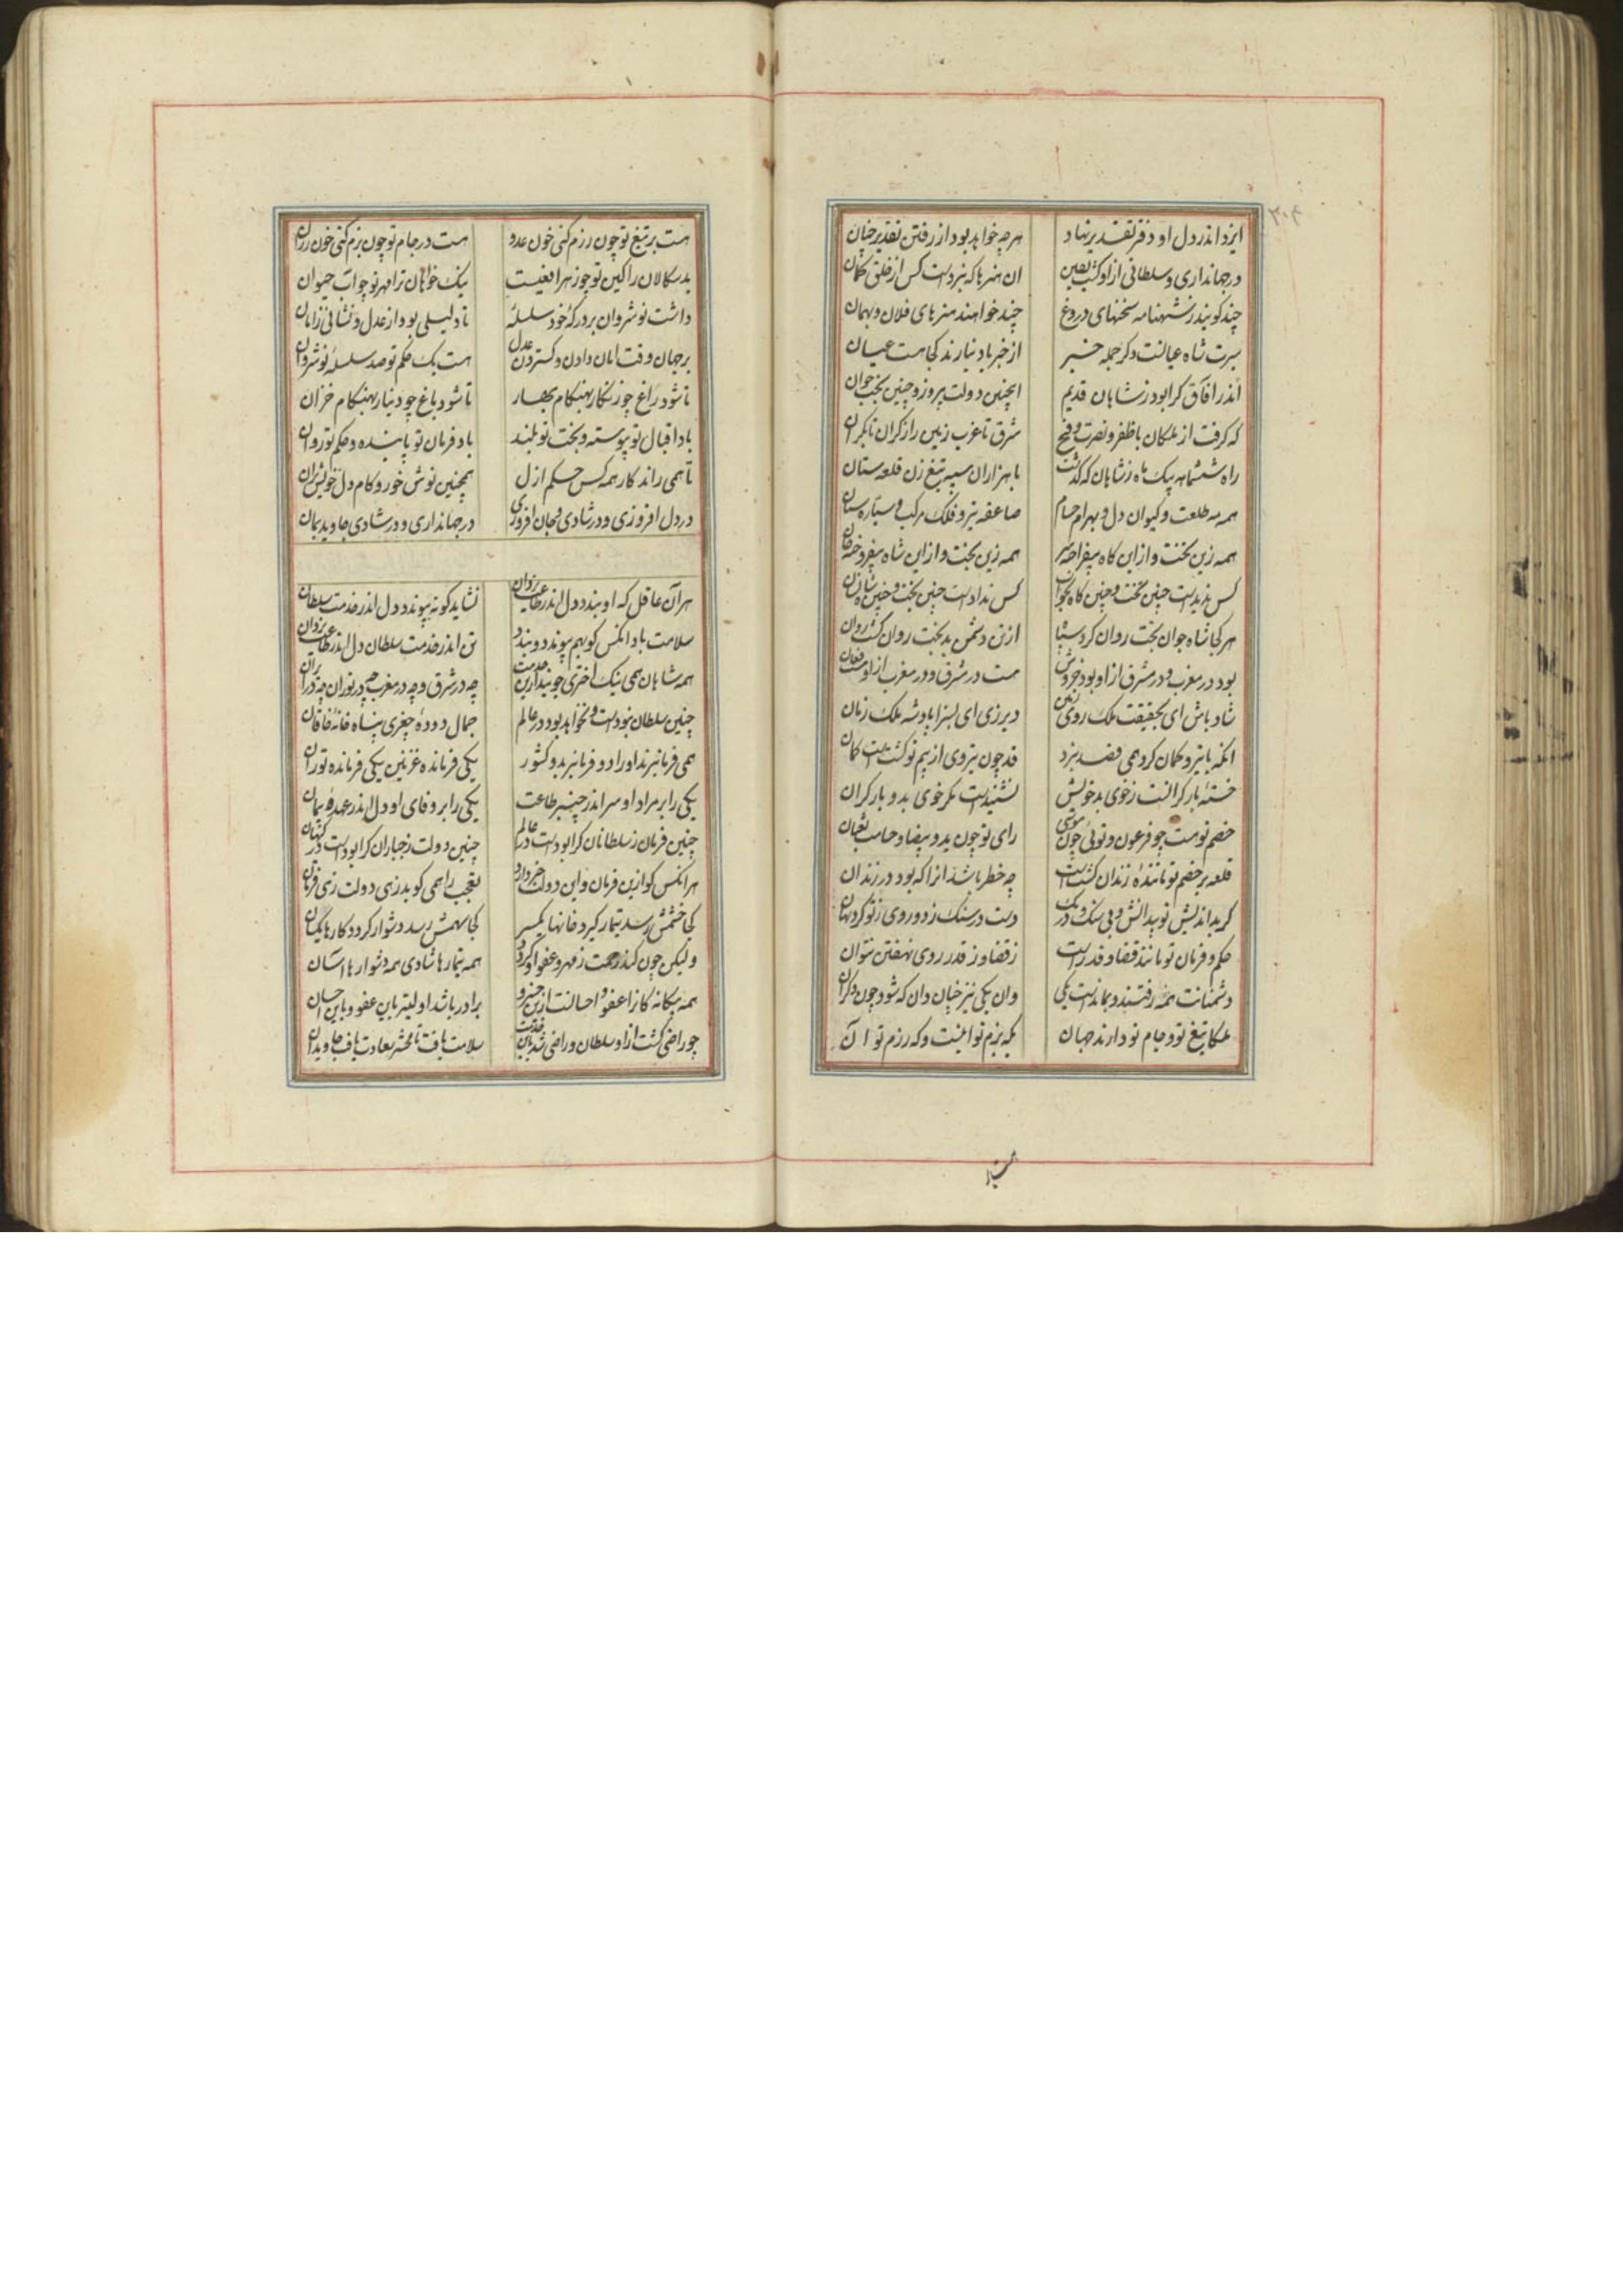 ایزد اندر دل او دفتر تقدیر نهاد هرچه خواهد بود از رفتن تقدیر چنان
در جهانداری و سلطانی ازاو کشت یقین ان هنرها که نبردست کس از خلق کمان
چند کویند ز شهنامه سخنهای دروغ چند خوانند هنرهای فلان و بهمان
سیرت شاه عیانست و کر جمله خبر از خبر یاد نیارند کجا هست عیان
اندر افاق کرا بود ز شاهان قدیم اینچنین دولت پیروز و چنین بخت جوان
که کرفت از ملکان با ظفر و نصرت و فتح شرق تا غرب زمین را ز کران تا بکران
راه ششماهه بیک ماه ز شاهان که کذشت با هزاران سپه تیغ زن قلعه ستان
همه مه طلعت و کیوان دل و بهرام حسام صاعقه تیر و فلک مرکب و سیاره سنان
همه زین تخت و ازاین کاه بیفراخته سر همه زین بخت و ازاین شاه بیفروخته جان
کس ندیدست چنین تخت و چنین کاه بخواب کس ندادست چنین بخت و چنین شاه نشان
هر کجا شاه جوان بخت روان کرد سپاه از تن دشمن بدبخت روان کشت روان
بود در مغرب و در مشرق ازاو بود خروش هست در مشرق و در مغرب ازاو هست فغان
شاد باش ای بحقیقت ملک روی زمین دیر زی ای بسزا پادشه ملک زمان
انکه با تیر و کمان کرد همی قصد نبرد قد چون تیر وی از بیم تو کشتست کمان
خسته بار کرانست ز خوی بد خویش نشنیدست مکر خوی بد و بار کران
خصم تو هست چو فرعون و توئی چون موسی رای تو چون ید و بیضا و حسامت ثعبان
قلعه بر خصم تو ماننده زندان کشتست چه خطر باشد انرا که بود در زندان
کر بد اندیش تو بیدانش و بی سنک و درنک دست در سنک زد و روی ز تو کرد نهان
حکم و فرمان تو مانند قضا و قدر است ز قضا و ز قدر روی نهفتن نتوان
دشمنانت همه رفتند و بماندست یکی وان یکی نیز چنان دان که شود چون دکران
ملکا تیغ تو و جام تو دارند جهان که بزم تو اینست و که رزم تو آن
هست بر تیغ تو چون رزم کنی خون عدو هست در جام تو چون بزم کنی خون رزان
بد سکالان را کین تو چو زهر افعیست نیک خواهان ترا مهر تو چو اب حیوان
داشت نوشروان بر درکه خود سلسله تا دلیلی بود از عدل و نشانی ز امان
بر جهان وقت امان دادن و کستردن عدل هست یک حکم تو صد سلسله نوشروان
تا شود راغ چو زنکار بهنکام بهار تا شود باغ چو دینار بهنکام خزان
باد اقبال تو پیوسته و بخت تو بلند باد فرمان تو پاینده و حکم تو روان
تا همی راند کار همه کس حکم ازل همچنین نوش خور و کام دل خویش بران
در دل افروزی و در شادی و جان افروزی در جهانداری و در شادی جاوید بمان
هر آن عاقل که او بندد دل اندر طاعت یزدان نشاید کو نه پیوندد دل اندر خدمت سلطان
سلامت باد انکس کو بهم پیوندد و بندد تن اندر خدمت سلطان دل اندر طاعت یزدان
همه شاهان همی نیک اختری جویند ازین خدمت چه در شرق و چه در مغرب چه در توران چه در ایران
چنین سلطان نبودست و نخواهد بود در عالم جمال دوده چغری پناه خانه خاقان
همی فرمانبرند او را دو فرمانبر بدو کشور یکی فرمانده غزنین یکی فرمانده توران
یکی را بر مراد او سر اندر چنبر طاعت یکی را بر وفای او دل اندر عهده پیمان
چنین فرمان ز سلطانان کرا بودست در عالم چنین دولت ز جباران کرا بودست در کیهان
هر انکس کو ازین فرمان و این دولت خبر دارد تعجب را همی کوید زهی دولت زهی فرمان
کجا خشمش رسد تیمار کیرد خانها یکسر کجا سهمش رسد دشوار کردد کارها یکسان
ولیکن چون کند رحمت ز مهر و عفو او کردد همه تیمارها شادی همه دشوارها اسان
همه بیکانه کانرا عفو و احسانست ازین خسرو برادر باشد اولیتر باین عفو و باین احسان
چو راضی کشت ازاو سلطان و راضی شد بدین خدمت سلامت یافت تا محشر سعادت یافت جاویدان
هست بر